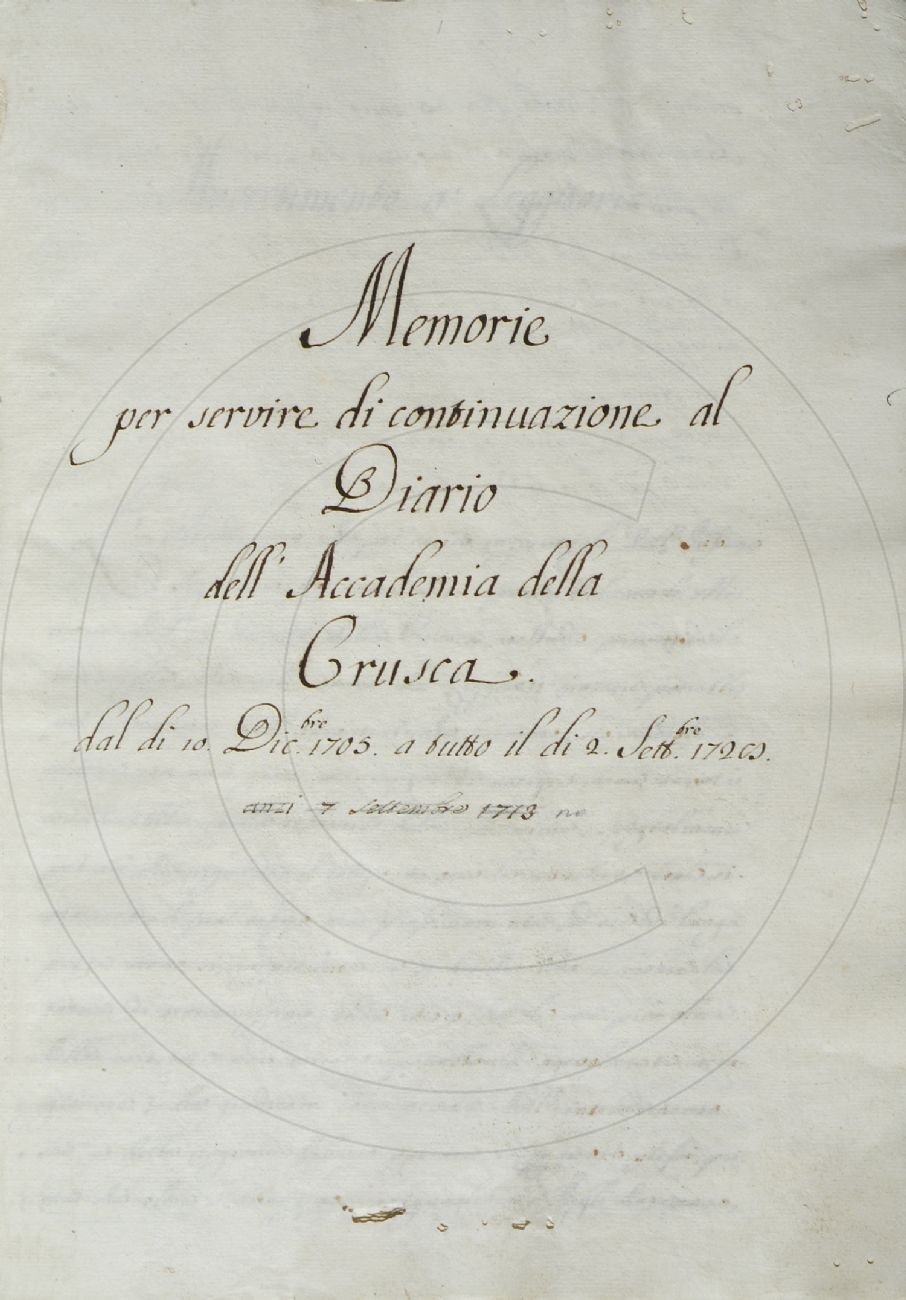 Memorie
per servire di continuazione al
Diario
dell' Accademia della
Crusca.
dal di 10. Dic.bre 1705. a tutto il di 2. Sett.bre
anzi 7 Settembre 1713 no